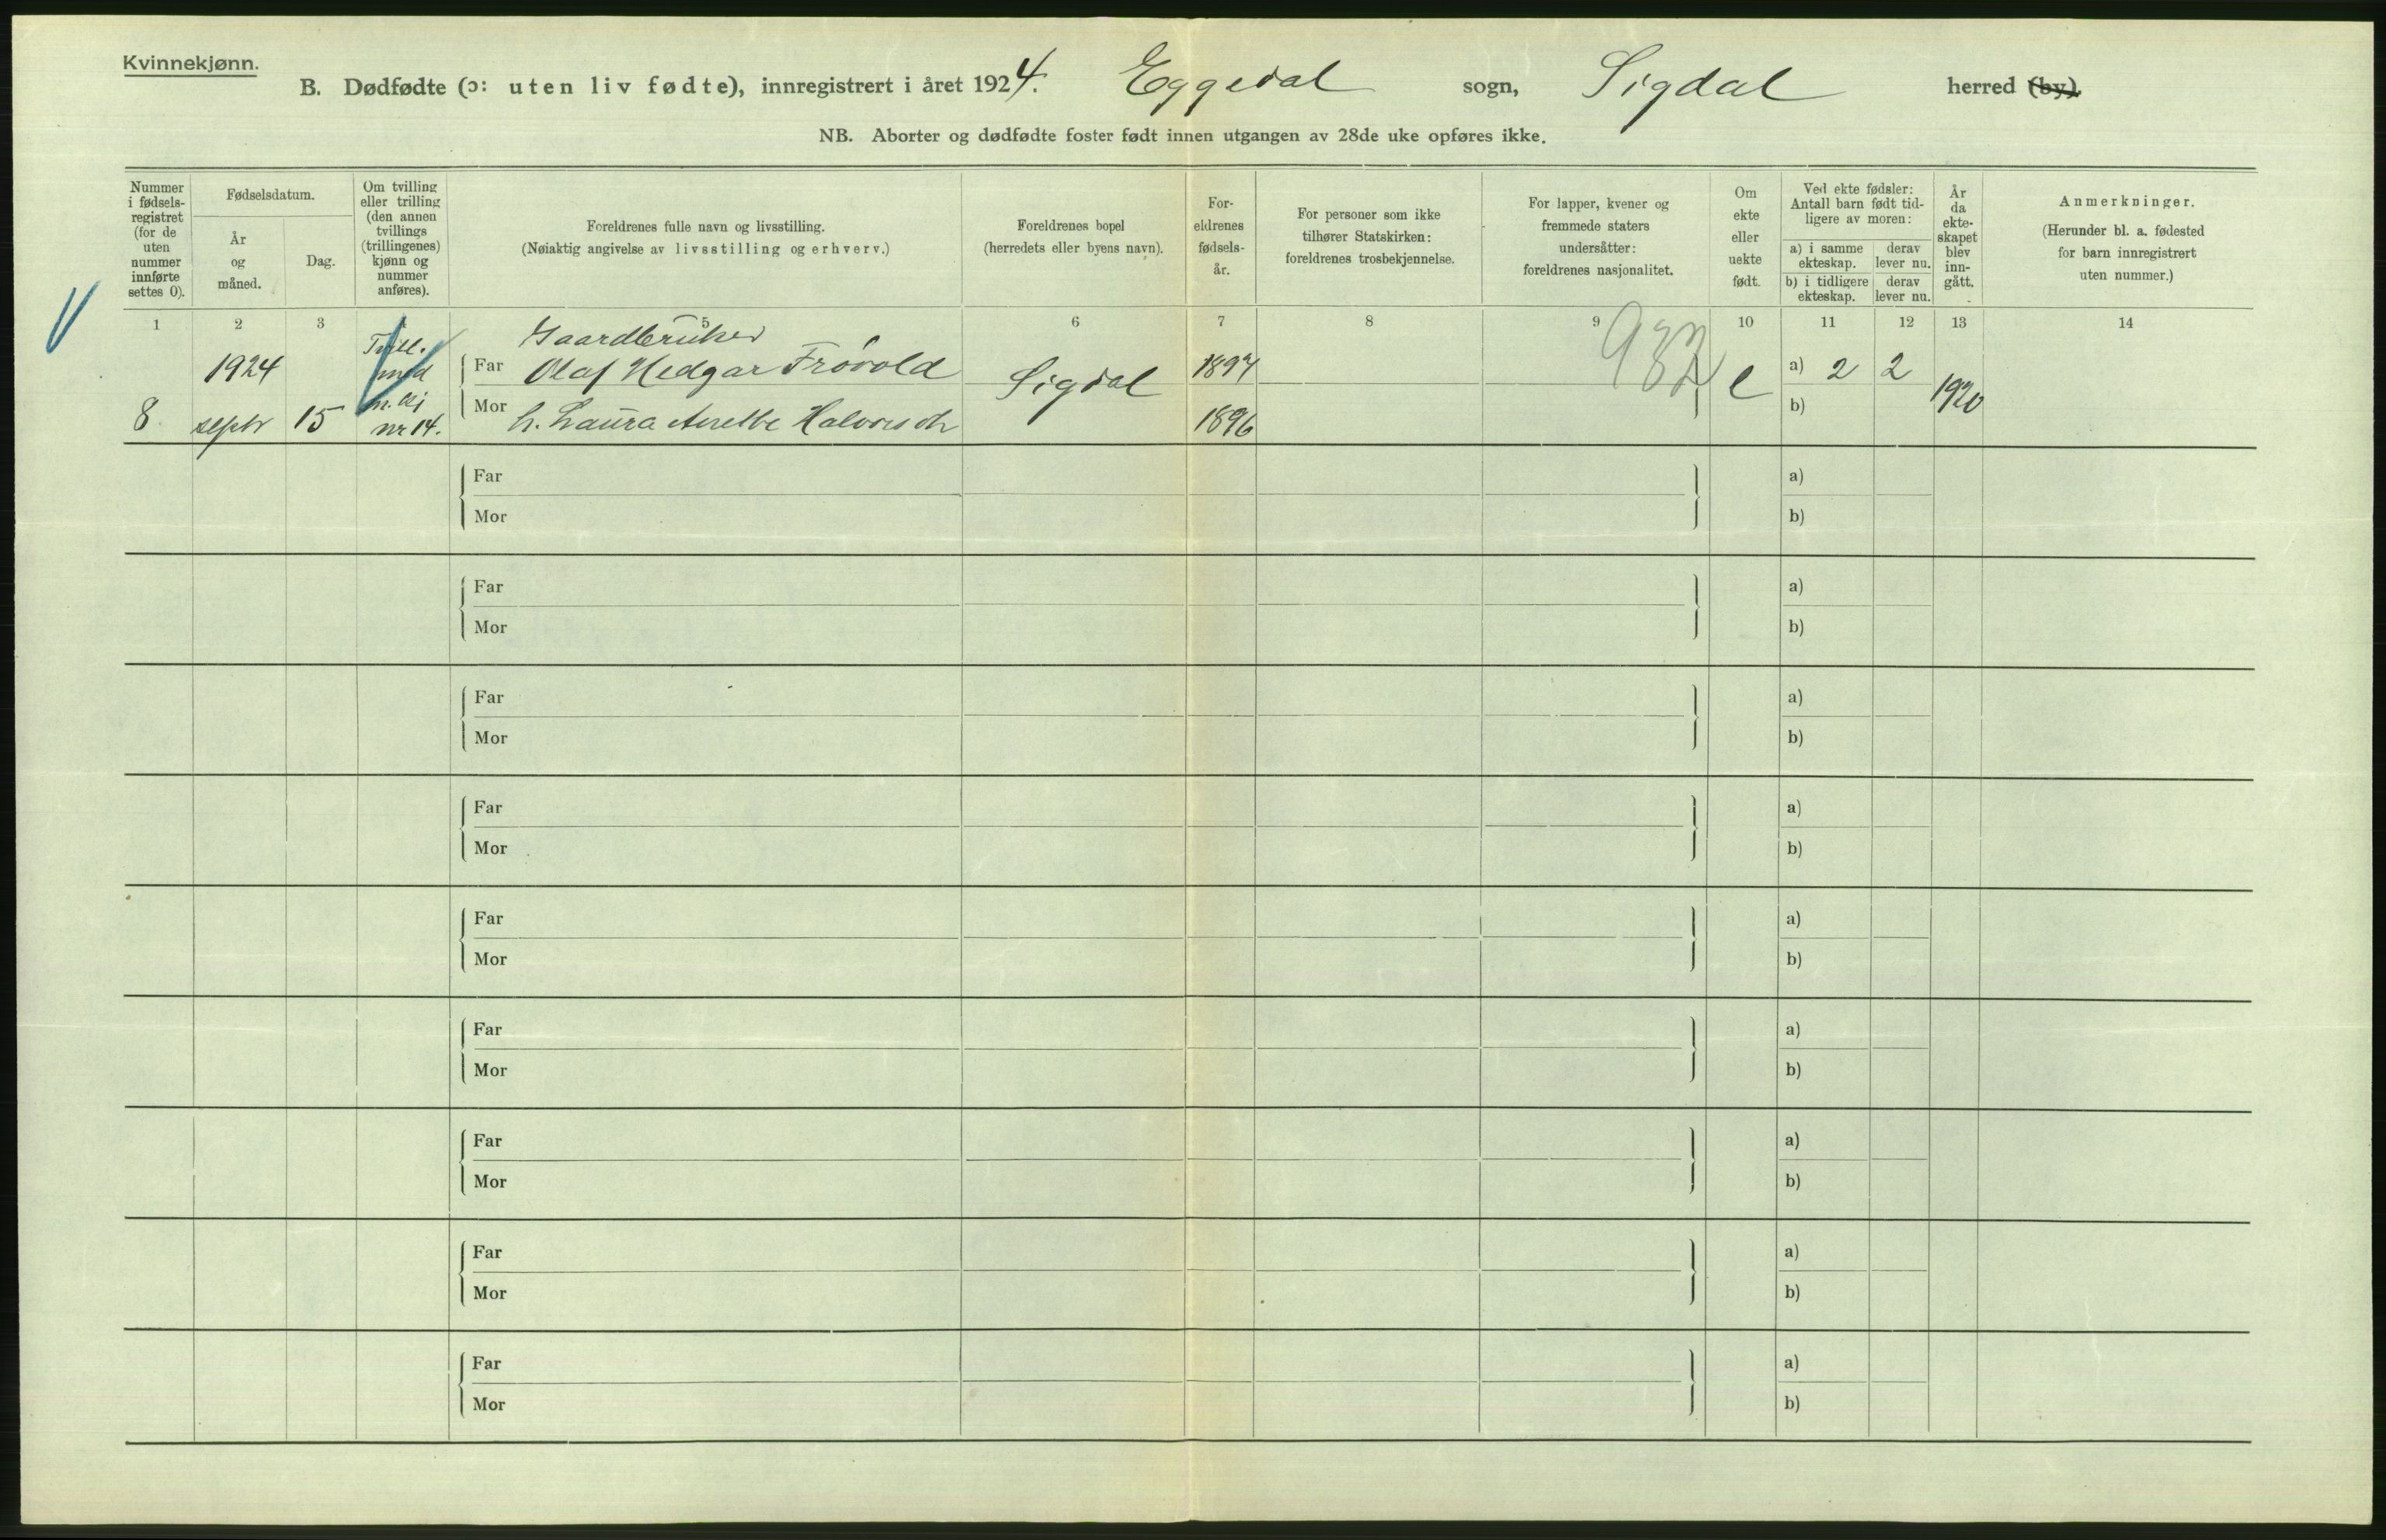 Kvinnekjønn.
B. Dødfødte (ɔ: uten liv fødte), innregistrert i året 1924. Eggedal sogn, Sigdal herred (by).
NB. Aborter og dødfødte foster født innen utgangen av 28de uke opføres ikke.
Nummer
i fødsels-
registret
(for de
uten
nummer
innførte
settes 0).
Fødselsdatum.
År
og
måned.
Dag.
Om tvilling
eller trilling
(den annen
tvillings
(trillingenes)
kjønn og
nummer
anføres).
Foreldrenes fulle navn og livsstilling.
(Nøiaktig angivelse av livsstilling og erhverv.)
Foreldrenes bopel
(herredets eller byens navn).
For-
eldrenes
fødsels-
år.
For personer som ikke
tilhører Statskirken:
foreldrenes trosbekjennelse.
For lapper, kvener og
fremmede staters
undersåtter:
foreldrenes nasjonalitet.
Om
ekte
eller
uekte
født.
Ved ekte fødsler:
Antall barn født tid-
ligere av moren:
a) i samme
ekteskap.
derav
lever nu.
b) i tidligere
ekteskap.
derav
lever nu.
År
da
ekte-
skapet
blev
inn-
gått.
Anmerkninger.
(Herunder bl. a. fødested
for barn innregistrert
uten nummer.)
1 2 3 5 6 7 8 9 10 11 12 13 14
8
1924
septr 15
Tvill.
med
m.kj
nr 14.
Gaardbruker
Far Olaf Hedgar Frøvold
Mor h. Laura Halvorsdr
Sigdal
1894
1896
932
e
a) 2 2
b)
1920
Far a)
Mor b)
Far a)
Mor b)
Far a)
Mor b)
Far a)
Mor b)
Far a)
Mor b)
Far a)
Mor b)
Far a)
Mor b)
Far a)
Mor b)
Far a)
Mor b)